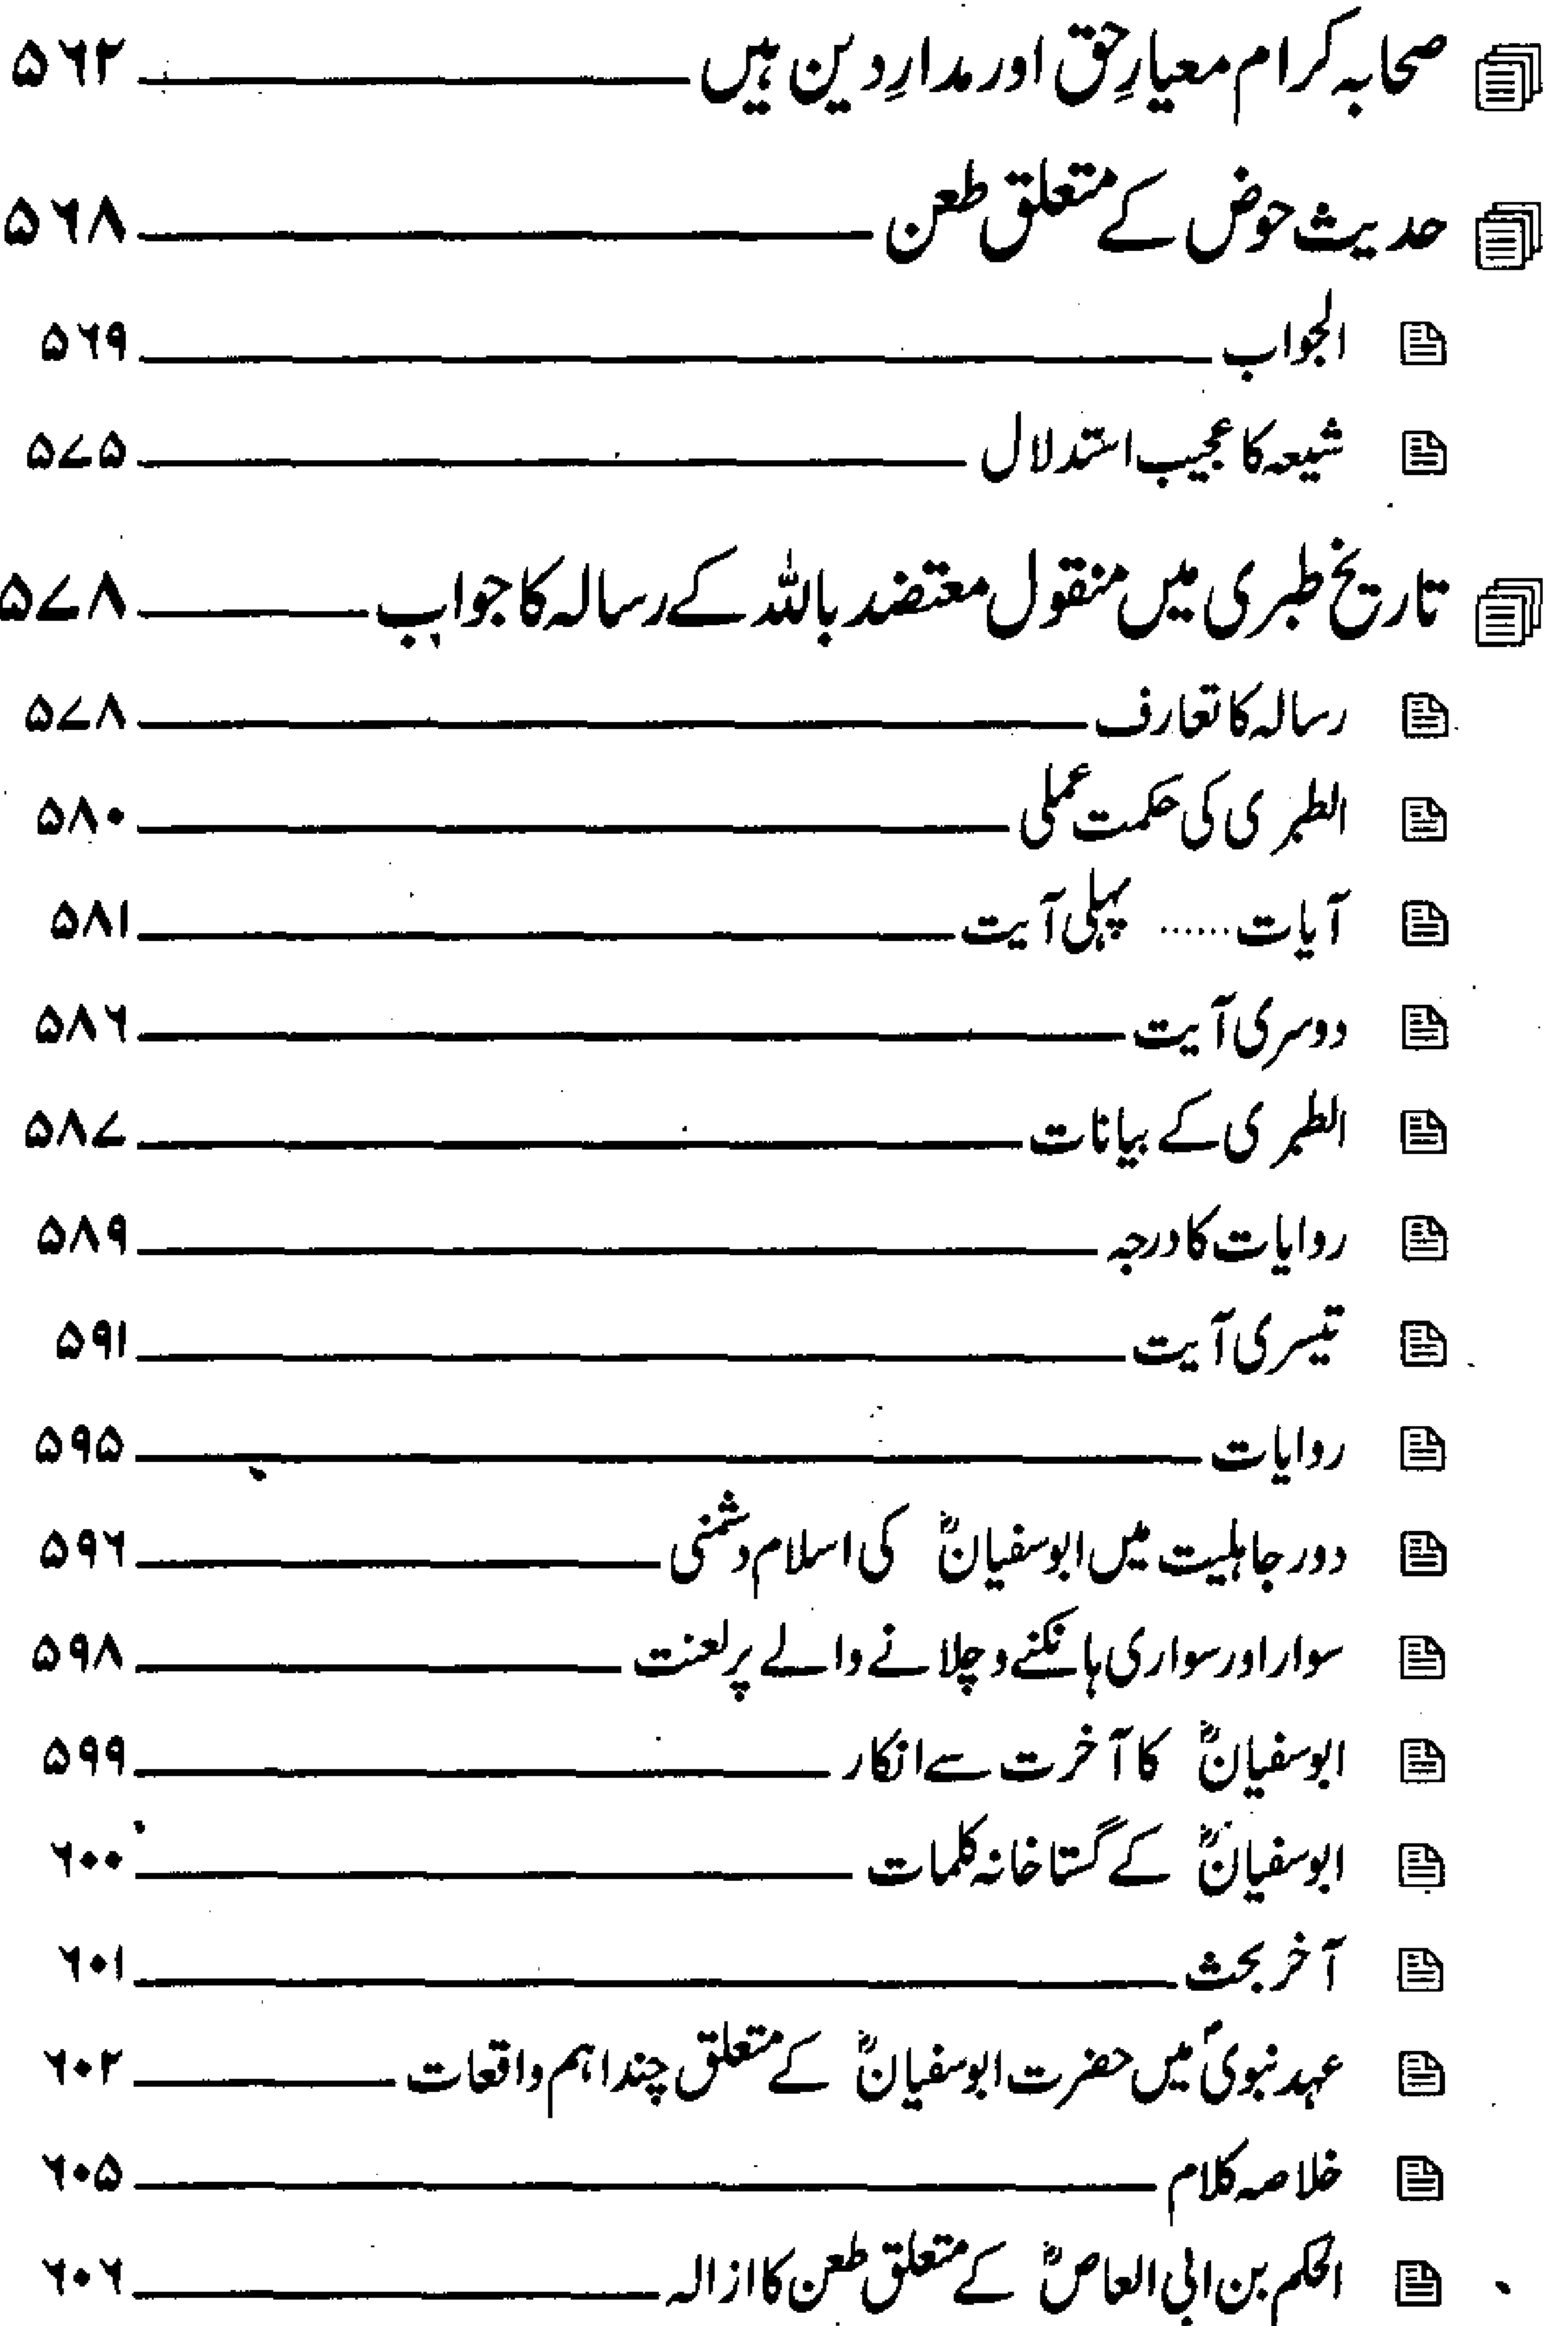 صحابہ کرام معیارِ حق اور مدارِ دین ہیں ۵۶۲
حدیث حوض کے متعلق طعن ۵۶۸
الجواب ۵۶۹
شیعہ کا عجیب استدلال ۵۷۵
تاریخ طبری میں منقول معتضد باللہ کے رسالہ کا جواب ۵۷۸
رسالہ کا تعارف ۵۷۸
الطبری کی حکمت عملی ۵۸۰
آیات...... پہلی آیت ۵۸۱
دوسری آیت ۵۸۶
الطبری کے بیانات ۵۸۷
روایات کا درجہ ۵۸۹
تیسری آیت ۵۹۱
روایات ۵۹۵
دور جاہلیت میں ابوسفیانؓ کی اسلام دشمنی ۵۹۶
سوار اور سواری ہانکنے و چلانے والے پر لعنت ۵۹۸
ابوسفیانؓ کا آخرت سے انکار ۵۹۹
ابوسفیانؓ کے گستاخانہ کلمات ۶۰۰
آخر بحث ۶۰۱
عہد نبویؐ میں حضرت ابوسفیانؓ کے متعلق چند اہم واقعات ۶۰۲
خلاصہ کلام ۶۰۵
الحکم بن ابی العاصؓ کے متعلق طعن کا ازالہ ۶۰۶